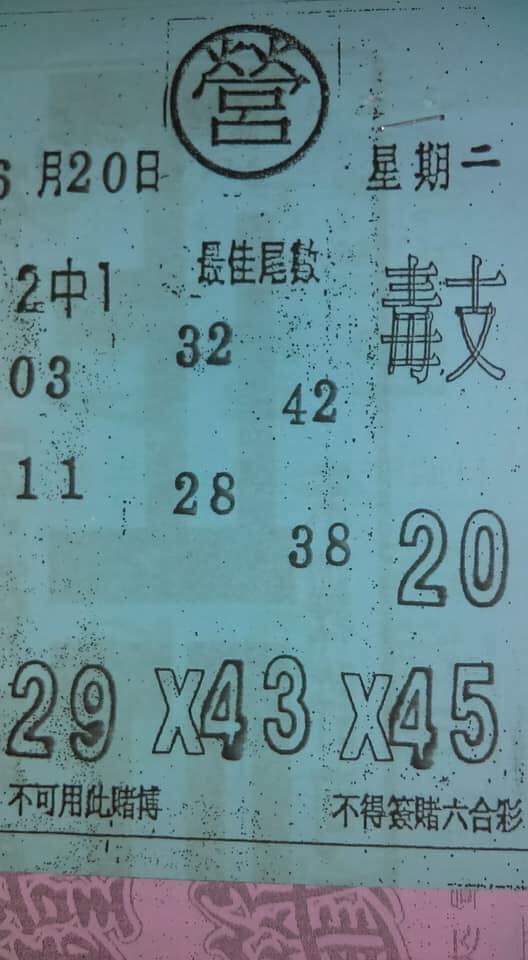 營
6月20日 星期二
2中1 最佳尾數 毒支
03 32
42
11 28
38 20
29X43X45
不可用此賭博 不得簽賭六合彩